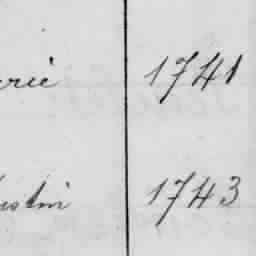 rie 1741
ustin 1743